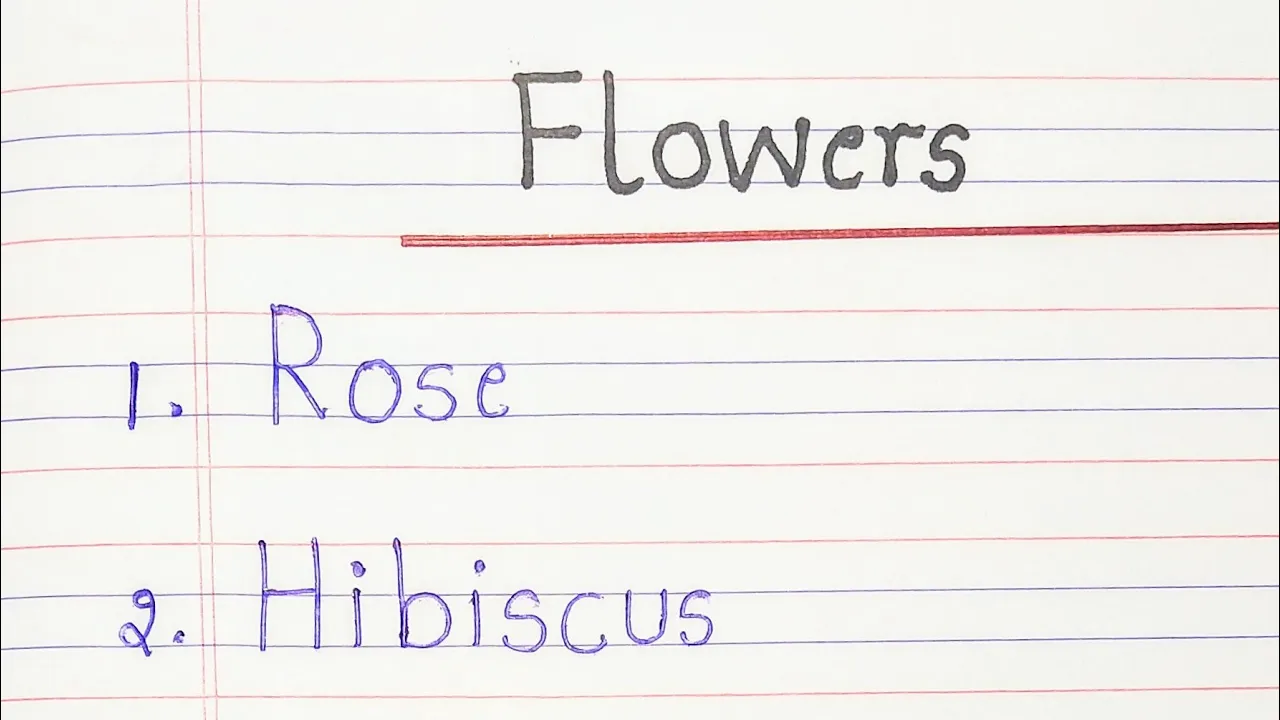 Flowers
1. Rose
2. Hibiscus